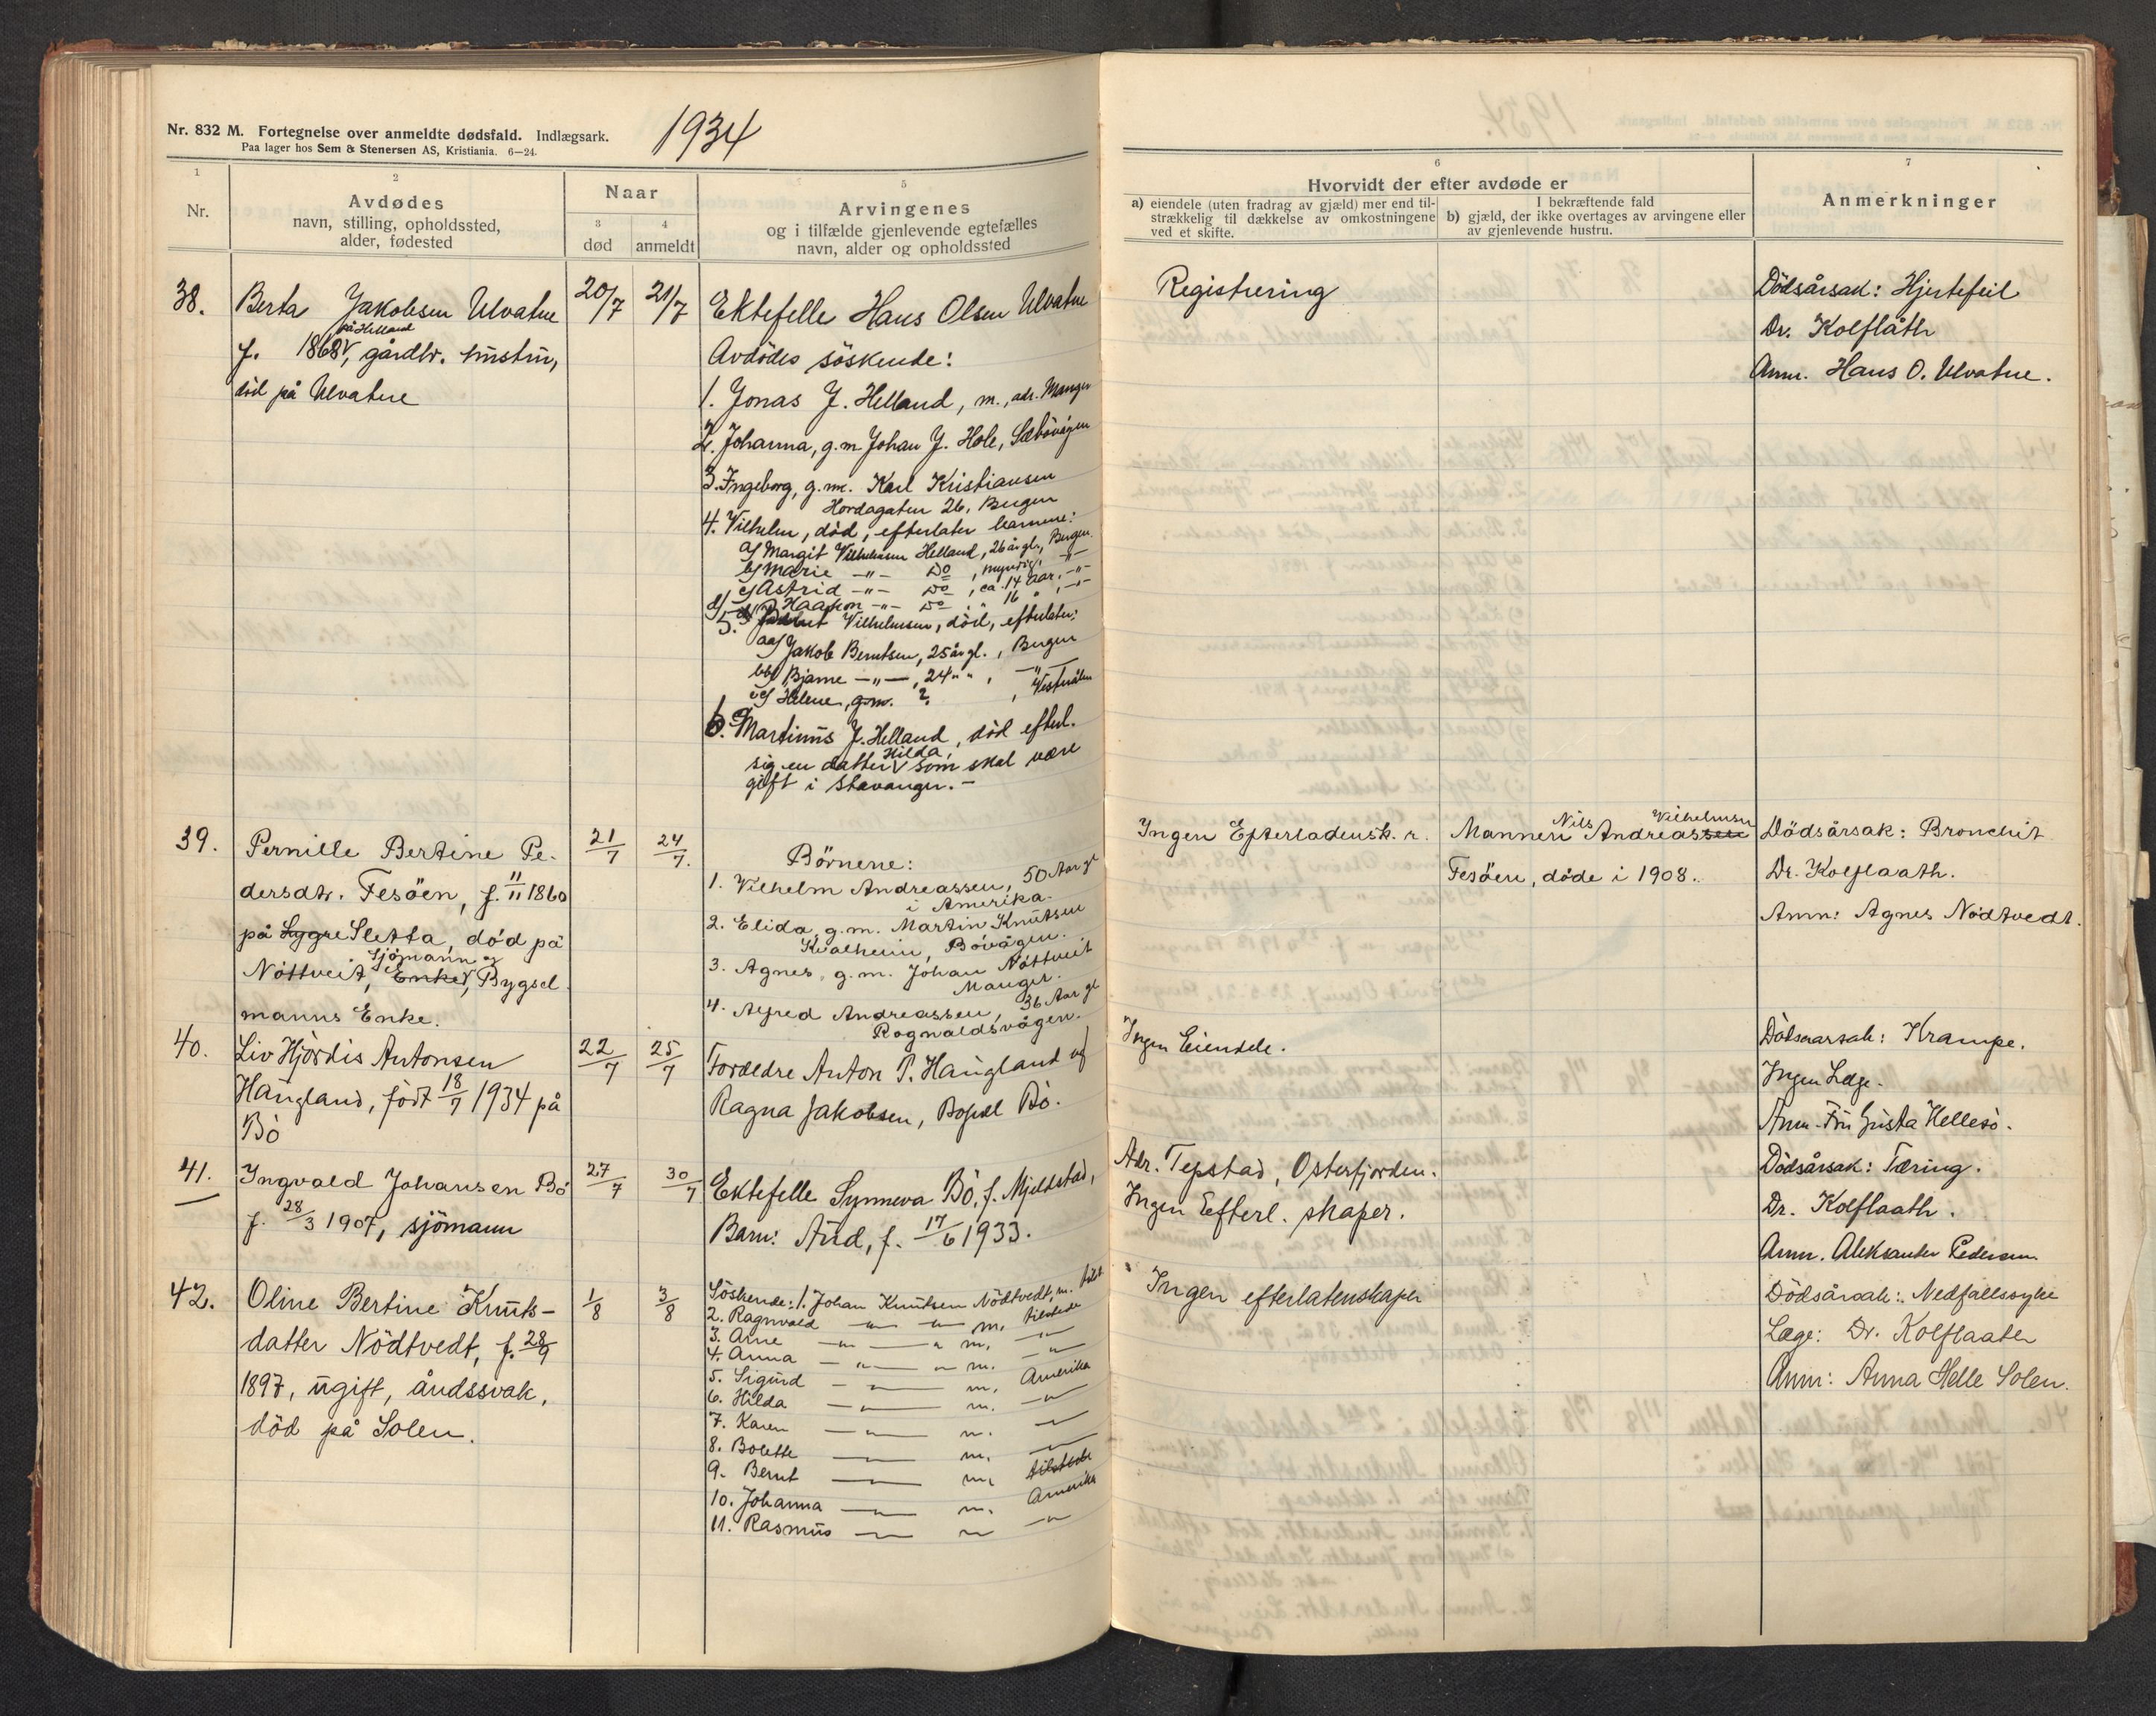 Nr. 832 M. Fortegnelse over anmeldte dødsfald. Indlægsark.
Paa lager hos Sem & Stenersen AS, Kristiania. 6—24.
1934
1
Nr.
2
Avdødes
navn, stilling, opholdssted,
alder, fødested
Naar
3
død
4
anmeldt
5
Arvingenes
og i tilfælde gjenlevende egtefælles
navn, alder og opholdssted
6
Hvorvidt der efter avdøde er
a) eiendele (uten fradrag av gjæld) mer end til-
strækkelig til dækkelse av omkostningene
ved et skifte.
I bekræftende fald
b) gjæld, der ikke overtages av arvingene eller
av gjenlevende hustru.
7
Anmerkninger
38.
Berta Jakobsen Ulvatne
på Helland
f. 1868, gårdbr. hustru,
död på Ulvatne
20/7
21/7
Ektefelle Hans Olsen Ulvatne
Avdödes söskende:
1. Jonas J. Helland, m., adr. Manger
2. Johanna, g.m. Johan J. Hole, Sæbövågen
3. Ingeborg, g.m. Karl Kristiansen
Hordagaten 26, Bergen
4. Vilhelm, död, efterlater barnene:
a/ Margit Vilhelmsen Helland, 26 år gl., Bergen.
b/ Marie -"- Do, myndig, -"-
c/ Astrid -"- Do, ca. 14 aar, -"-
d/ Haakon -"- Do, " 16 ", -"-
5. Vilhelmsen, död, efterlater:
aa/ Jakob Berntsen, 25 år gl., Bergen
bb/ Bjarne -"-, 24 " ", -"-
cc/ Helene, g.m. ?, Vesterålen
6. Martinus J. Helland, död efterl.
Hilda,
sig en datter som skal være
gift i Stavanger. -
Registrering
Dödsårsak: Hjertefeil
Dr. Kolflåth
Anm. Hans O. Ulvatne.
39.
Pernille Bertine Pe-
dersdtr. Fesöen, f. 11/11 1860
på Lygre Sletta, död på
Sjömann og
Nöttveit, Enke, Bygsel
manns Enke.
21/7
24/7.
Börnene:
1. Vilhelm Andreassen, 50 Aar gl
i Amerika.
2. Elida, g.m. Martin Knutsen
Kvalheim, Bövågen.
3. Agnes, g.m. Johan Nöttveit
Manger.
4. Alfred Andreassen, 36 Aar gl
Rognaldsvågen.
Ingen Efterladensk. r.
Nils Vilhelmsen
Mannen Andreassen
Fesöen, döde i 1908.
Dödsårsak: Bronchit
Dr. Kolflaath.
Anm: Agnes Nödtvedt.
40.
Liv Hjördis Antonsen
Haugland, födt 18/7 1934 på
Bö
22/7
25/7
Foreldre Anton P. Haugland og
Ragna Jakobsen, Bopæl Bö.
Ingen Eiendele.
Dödsaarsak: Krampe.
Ingen Læge.
Anm. Fru Gusta Hellesö.
41.
Ingvald Johansen Bö
f. 28/3 1907, sjömann
27/7
30/7
Ektefelle Synneva Bö, f. Mjeldstad,
Barn: Aud, f. 17/6 1933.
Adr. Tepstad, Osterfjorden.
Ingen Efterl. skaper.
Dödsårsak: Tæring.
Dr. Kolflaath.
Anm. Aleksander Pedersen
42.
Oline Bertine Knuts-
datter Nödtvedt, f. 28/9
1897, ugift, åndssvak,
död på Solen.
1/8
3/8
Söskende: 1. Johan Knutsen Nödtvedt, m. tilst.
2. Ragnvald -"- -"- m. tilstede
3. Arne -"- -"- m. -"-
4. Anna -"- -"- m. -"-
5. Sigurd -"- m. Amerika
6. Hilda -"- m. -"-
7. Karen -"- m. -"-
8. Bolette -"- m. -"-
9. Bernt -"- m. tilstede
10. Johanna -"- m. Amerika
11. Rasmus -"- m -"-
Ingen efterlatenskaper
Dödsårsak: Nedfallssyke
Læge: Dr. Kolflaath
Anm: Anna Helle Solen.